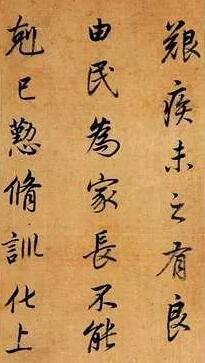 艱疾未之有良
由民為家長不能
剋己懃脩訓化上